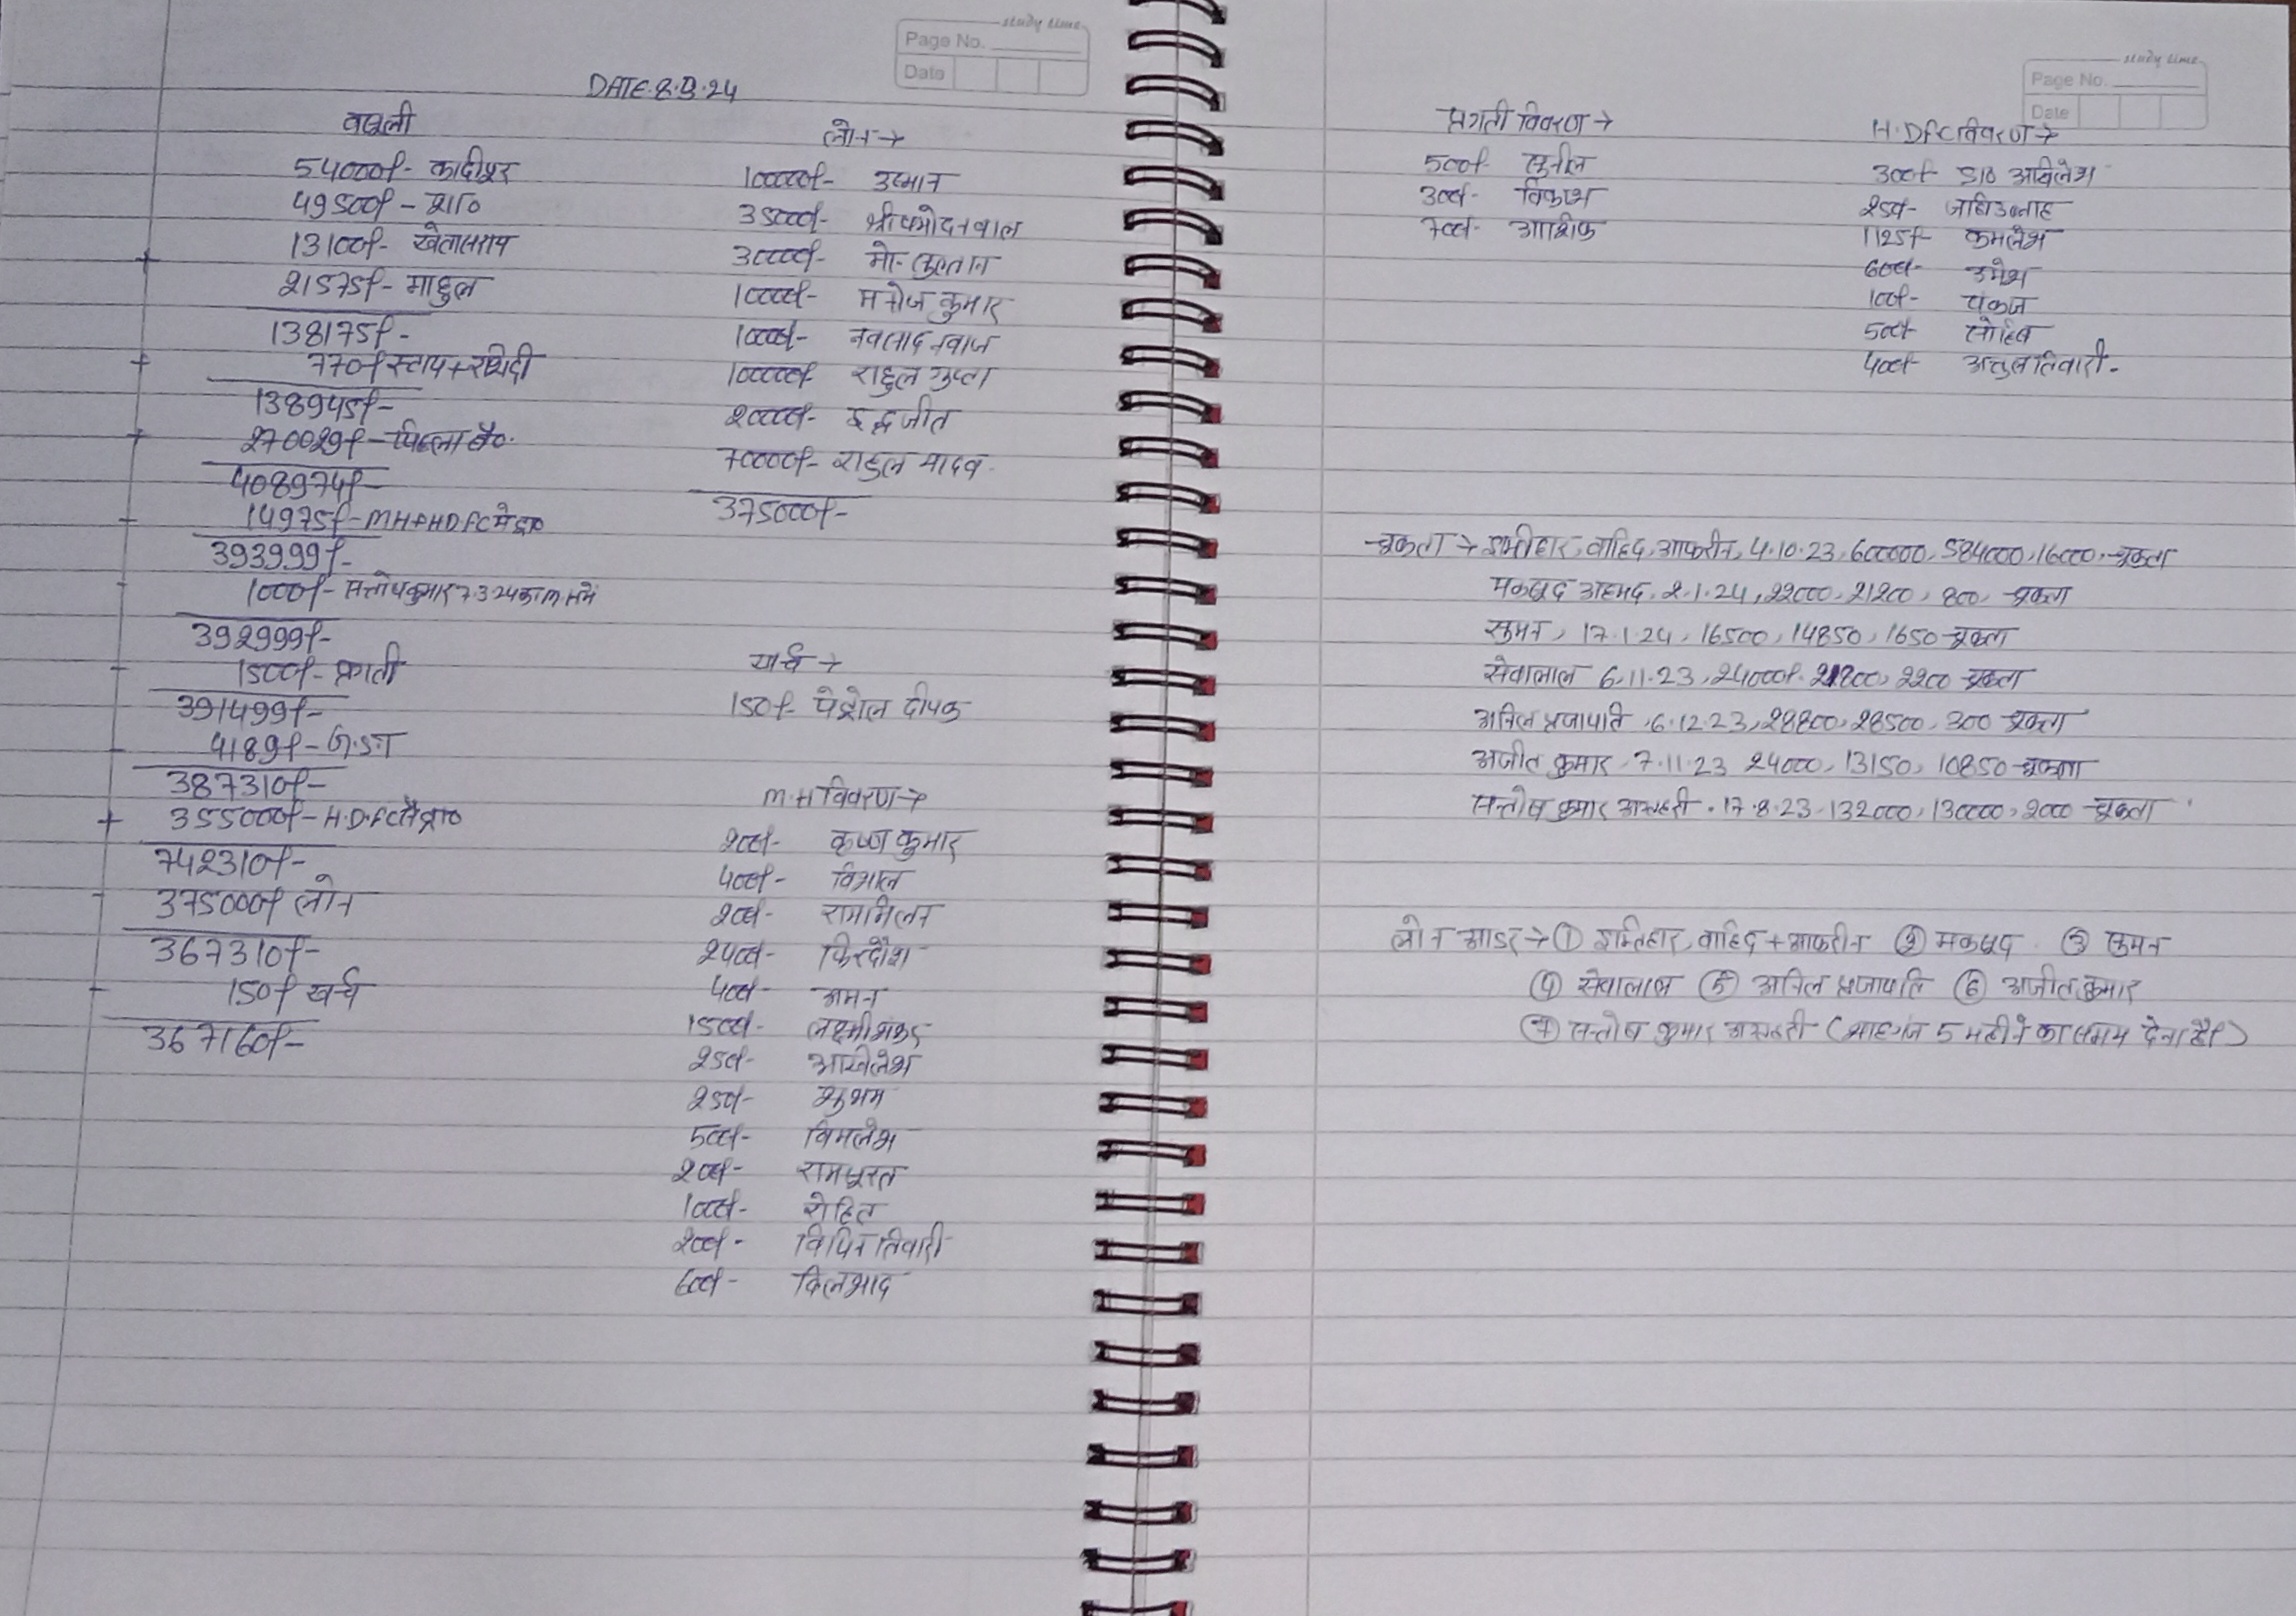 study time
Page No.
Date
DATE. 8.3.24
वसूली
54000/- कादीपुर
49500/- शा०
13100/- खेतासराय
+ 21575/- माहुल
138175/-
+ 770/- स्टाम्प + रसीदी
138945/-
+ 270029/- पिछला बै०
408974/-
- 14975/- MH+HDFC में प्रा०
393999/-
- 1000/- सन्तोष कुमार 7.3.24 का m.H में
392999/-
- 1500/-
391499/-
- 4189/- G.S.T
387310/-
+ 355000/- H.D.FC से प्रा०
742310/-
- 375000/- लोन
367310/-
- 150/- खर्च
367160/-
लोन →
100000/- उस्मान
35000/- श्री प्रमोदनवाल
30000/- मो० सुल्तान
10000/- मनोज कुमार
10000/- नवसाद नवाज
100000/- राहुल गुप्ता
20000/- इन्द्रजीत
70000/- राहुल यादव
375000/-
खर्च →
150/- पेट्रोल दीपक
M.H विवरण →
200/- कृष्ण कुमार
400/- विशाल
200/- राममिलन
2400/- फिरदौश
400/- अमन
1500/- लक्ष्मीशंकर
250/- अखिलेश
250/- शुभम
500/- विमलेश
200/- रामसूरत
1000/- रोहित
200/- विपिन तिवारी
600/- दिलशाद
study time
Page No.
Date
प्रगती विवरण →
500/- सुनील
300/- विकाश
700/- आशिक
H.DFC विवरण →
300/- S/O अखिलेश
250/-
1125/- कमलेश
600/- उमेश
100/- पंकज
500/- सोहित
400/- अतुल तिवारी.
चुकता → इम्तीहार, वाहिद, आफरीन, 4.10.23, 600000, 584000, 16000, चुकता
मकसूद अहमद, 2.1.24, 22000, 21200, 800, चुकता
सुमन, 17.1.24, 16500, 14850, 1650 चुकता
सेवालाल 6.11.23, 24000/- 21800, 2200 चुकता
अनिल प्रजापति, 6.12.23, 28800, 28500, 300 चुकता
अजीत कुमार, 7.11.23 24000, 13150, 10850 चुकता
सन्तोष कुमार अग्रहरी. 17.8.23. 132000, 130000, 2000 चुकता
लोन आडर → ① इम्तिहार, वाहिद + आफरीन ② मकसूद ③ सुमन
④ सेवालाल ⑤ अनिल प्रजापति ⑥ अजीत कुमार
⑦ सन्तोष कुमार अग्रहरी (शाहगंज 5 महीने का समय देना है।)